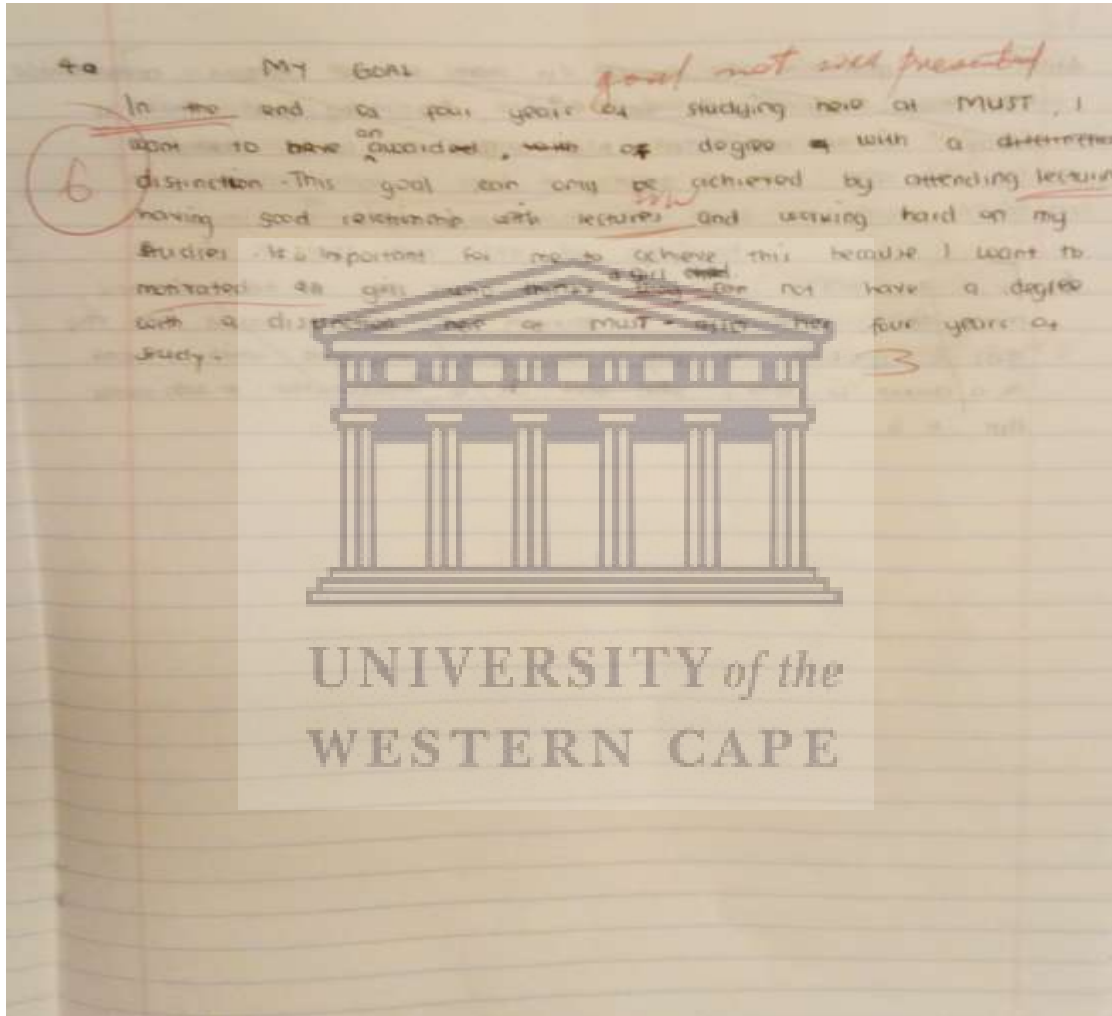 4a MY GOAL goal not well presented
In the end of four years of studying here at MUST, I
want to have an awarded, with of degree with a
distinction. This goal can only be achieved by attending lectures
6
sp/w
having good relationship with lectures and working hard on my
studies. It is important for me to achieve this because I want to
a girl child
motivated girls who thinks they can not have a degree
with a distinction here at MUST after her four years of
study.
3
UNIVERSITY of the
WESTERN CAPE